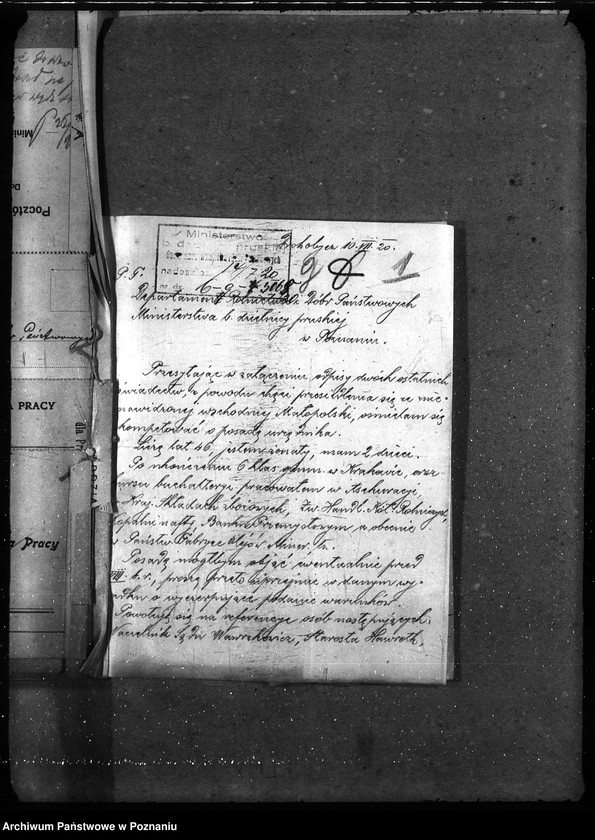 Ministerstwo
b. dz. pruskiej
14/7 20
6-9-
Drohobycz 10. VII. 20.
1
P. T.
Departament Rolnictwa i Dóbr Państwowych
Ministerstwa b. dzielnicy pruskiej
w Poznaniu.
Przesyłając w załączeniu odpisy dwóch ostatnich
świadectw, z powodu chęci przesiedlenia się ze znie-
nawidzonej wschodniej Małopolski, ośmielam się
kompetować o posadę urzędnika.
Liczę lat 46, jestem żonaty, mam 2 dzieci.
Po ukończeniu 6 klas gimn. w Krakowie, oraz
kursu buchalteryi, pracowałem w Asekuracyi,
Kraj. Składach zbożowych, Zw. Handl. Kół. Rolniczych,
kopalni nafty, Banku Przemysłowym, a obecnie
w Państw. Fabryce Olejów Miner. tu.
Posadę mógłbym objąć ewentualnie przed
VIII b. r., proszę przeto uprzejmie w danym wy-
padku o wyczerpujące podanie warunków.
Powołuję się na referencye osób następujących:
Naczelnik Sądu Wawrzkowicz, Starosta
A PRACY
Pracy
Archiwum Państwowe w Poznaniu